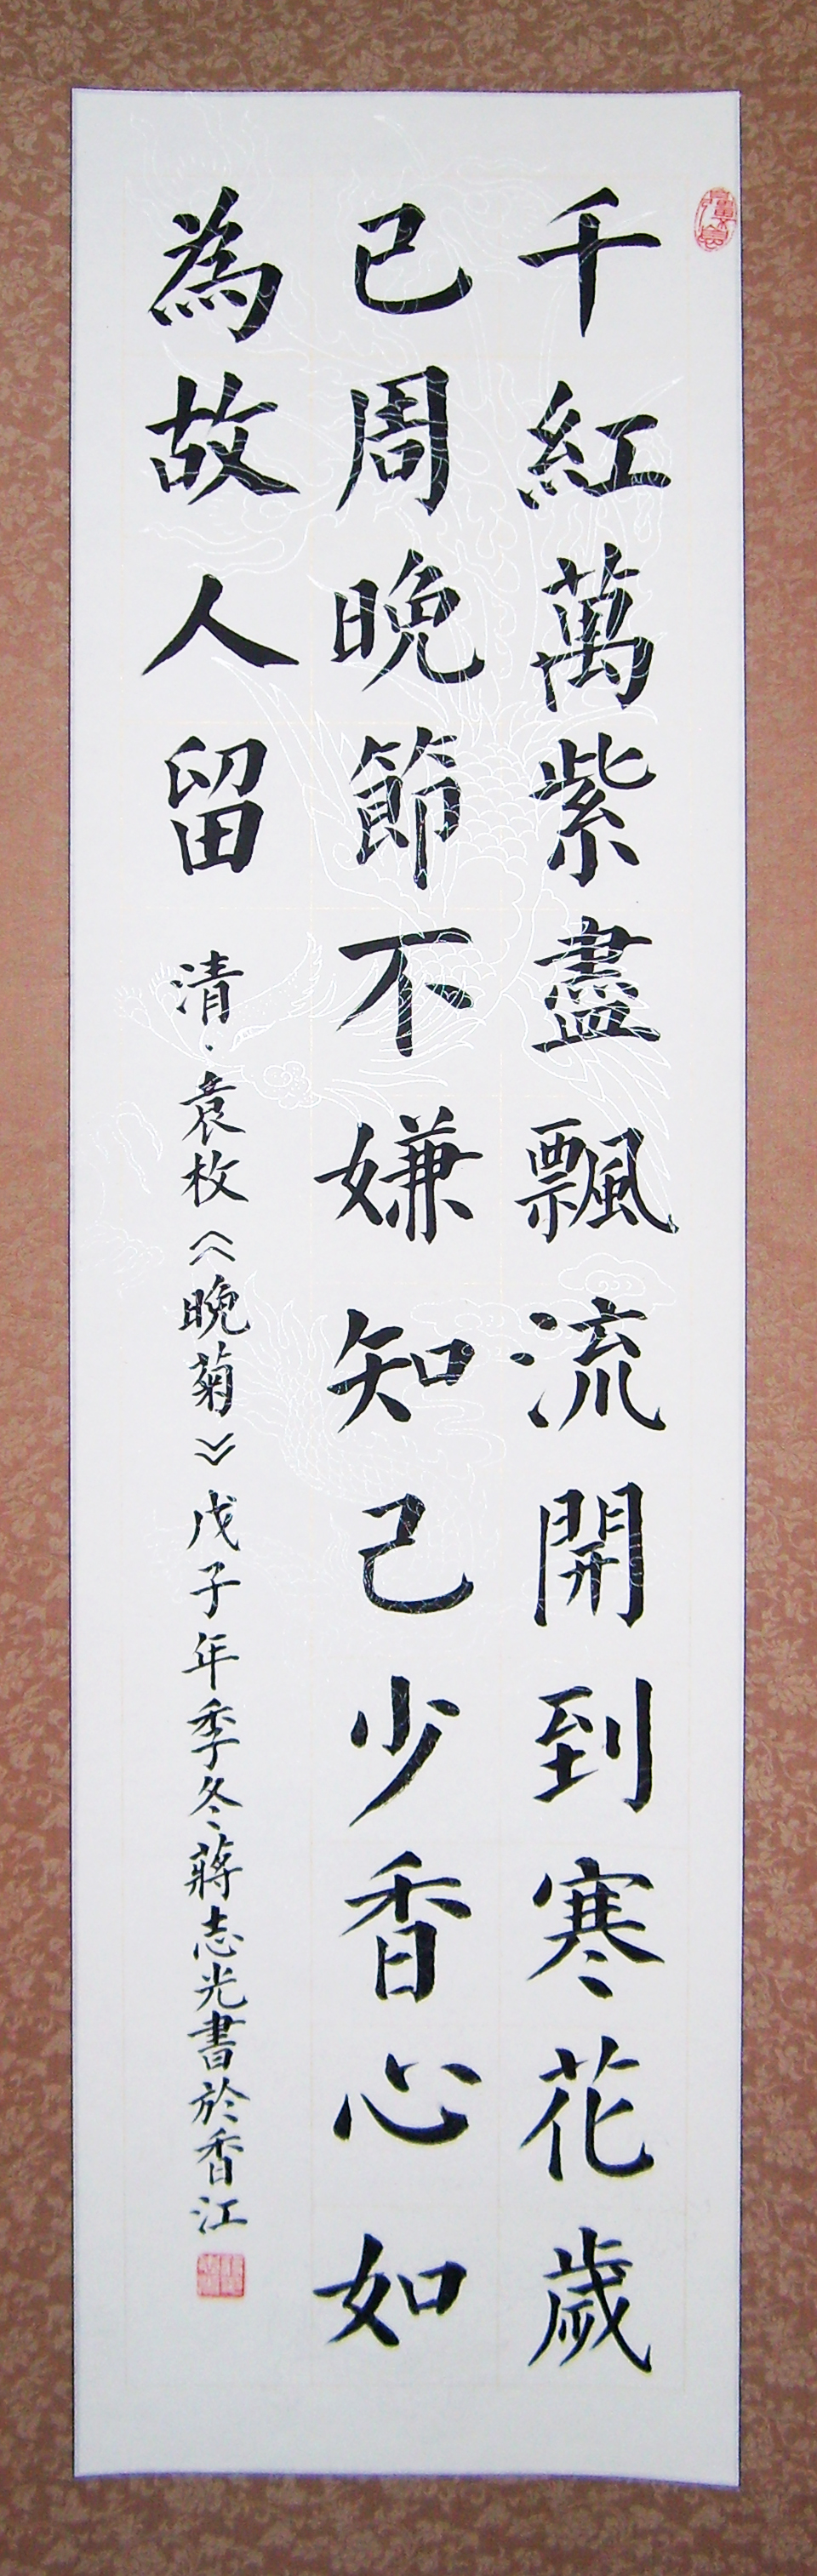 千紅萬紫盡飄流開到寒花歲
已周晚節不嫌知己少香心如
為故人留
清·袁枚《晚菊》戊子年季冬蔣志光書於香江